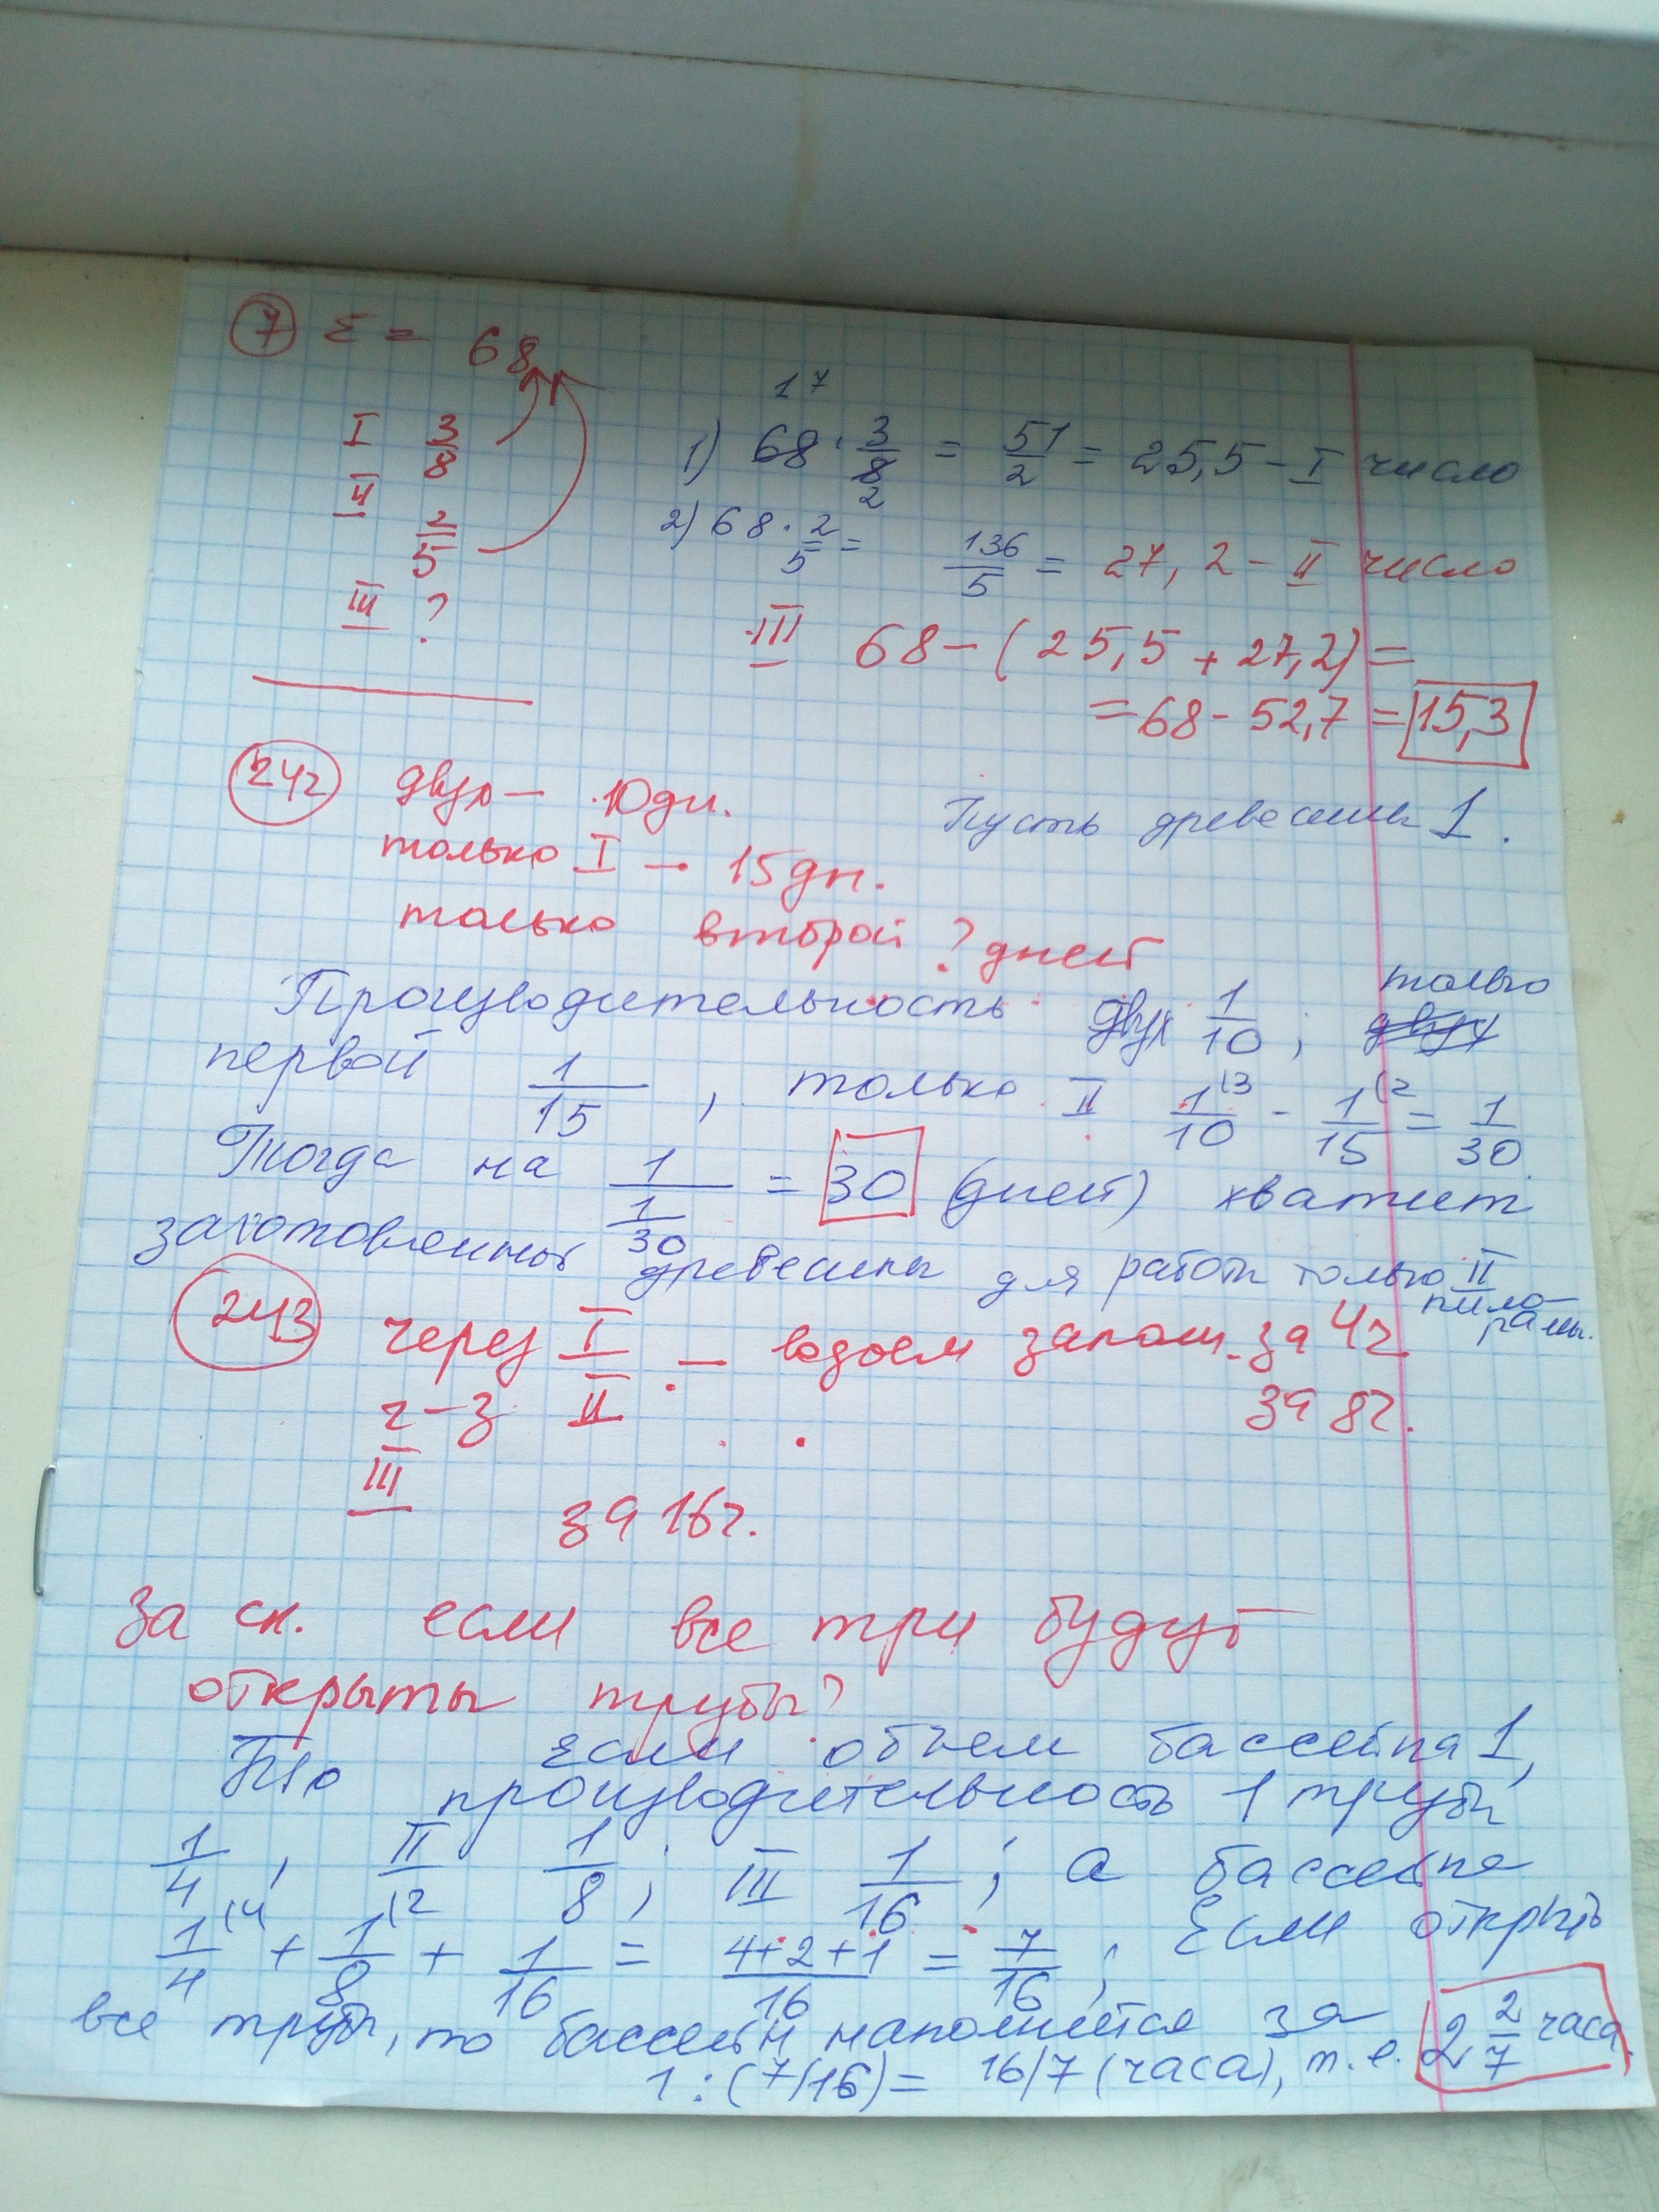 7 Σ = 68
I 3/8
II 2/5
III ?
17
1) 68 · 3/8 = 51/2 = 25,5 – I число
2
2) 68 · 2/5 = 136/5 = 27,2 – II число
III 68 – (25,5 + 27,2) =
= 68 - 52,7 = 15,3
242 двух – 10 дн.
Пусть древесины 1.
только I – 15 дн.
только второй ? дней
Производительность двух 1/10; только
первой 1/15, только II 1/10 (3 - 1/15 (2 = 1/30.
Тогда на 1/(1/30) = 30 (дней) хватит
заготовленной древесины для работы только II
пило-
рамы.
243 через I – водоем заполн. за 4 ч
ч-з II за 8 ч.
III за 16 ч.
За ск. если все три будут
открыты трубы?
если объем бассейна 1,
То производительность 1 трубы
1/4, II 1/8; III 1/16; а бассейна
1/4 (4 + 1/8 (2 + 1/16 = (4+2+1)/16 = 7/16; Если открыть
все трубы, то бассейн наполняется за
1 : (7/16) = 16/7 (часа), т.е. 2 2/7 часа.